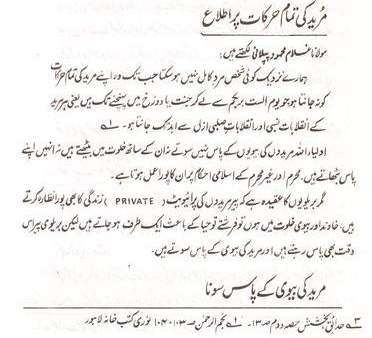 مُرید کی تمام حرکات پر اطلاع
مولانا غلام محمود پیلانی لکھتے ہیں:
ہمارے نزدیک کوئی شخص مرد کامل نہیں ہو سکتا جب تک وہ اپنے مرید کی تمام حرکات
کو نہ جانتا ہو جو یوم الست بربکم سے لے کر جنت یا دوزخ میں پہنچنے تک ہیں یعنی ہر مرید
کے انقلابات نسبی اور انقلابات صلبی ازل سے ابد تک جانتا ہو۔ ؎۱
اولیاء اللہ مریدوں کی بیویوں کے پاس نہیں سوتے نہ ان کے ساتھ خلوت میں بیٹھتے ہیں نہ انہیں اپنے
پاس بٹھاتے ہیں۔ محرم اور غیر محرم کے اسلامی احکام پر ان کا پورا عمل ہوتا ہے۔
مگر بریلویوں کا عقیدہ ہے کہ پیر مریدوں کی پرائیویٹ ( PRIVATE ) زندگی کا بھی پورا نظارہ کرتے
ہیں۔ خاوند اور بیوی خلوت میں ہوں تو فرشتے تو حیا کے باعث ایک طرف ہو جاتے ہیں لیکن بریلوی پیر اس
وقت بھی پاس رہتے ہیں اور مرید کی بیوی کے پاس سوتے ہیں۔
مرید کی بیوی کے پاس سونا
؎۳ حدائق بخشش حصہ دوم ص۱۳۔ ؎۱ نجم الرحمٰن ص۱۰۳، ۱۰۴ نوری کتب خانہ لاہور